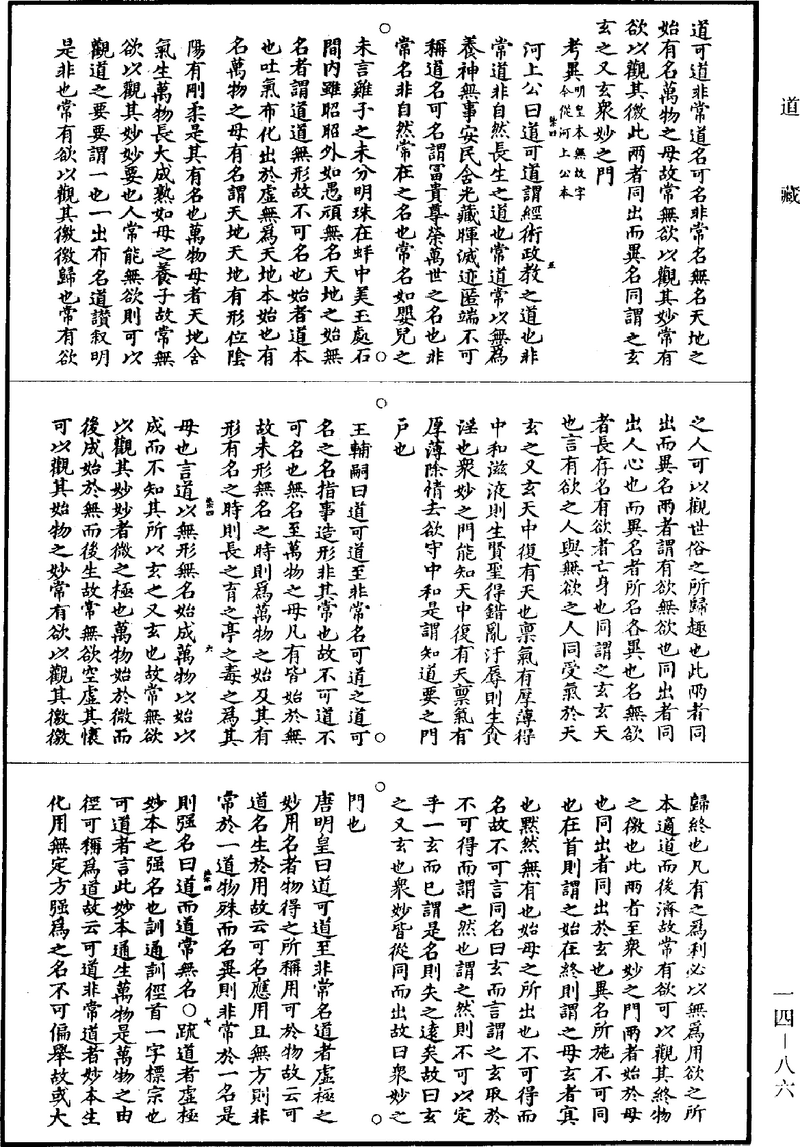 道藏
道可道非常道名可名非常名無名天地之
始有名萬物之母故常無欲以觀其妙常有
欲以觀其徼此两者同出而異名同謂之玄
玄之又玄衆妙之門
考異明皇本無故字
今從河上公本
河上公曰道可道謂經術政教之道也非
常道非自然長生之道也常道常以無為
養神無事安民含光藏暉滅迹匿端不可
稱道名可名謂富貴尊榮萬世之名也非
常名非自然常在之名也常名如嬰兒之
未言雞子之未分明珠在蚌中美玉處石
間内雖昭昭外如愚頑無名天地之始無
名者謂道道無形故不可名也始者道本
也吐氣布化出於虛無為天地本始也有
名萬物之母有名謂天地天地有形位陰
陽有剛柔是其有名也萬物母者天地含
氣生萬物長大成熟如母之養子故常無
欲以觀其妙妙要也人常能無欲則可以
觀道之要要謂一也一出布名道讚叙明
是非也常有欲以觀其徼徼歸也常有欲
之人可以觀世俗之所歸趣也此兩者同
出而異名兩者謂有欲無欲也同出者同
出人心也而異名者所名各異也名無欲
者長存名有欲者亡身也同謂之玄玄天
也言有欲之人與無欲之人同受氣於天
玄之又玄天中復有天也禀氣有厚薄得
中和滋液則生賢聖得錯亂汙辱則生貪
淫也衆妙之門能知天中復有天禀氣有
厚薄除情去欲守中和是謂知道要之門
戶也
王輔嗣曰道可道至非常名可道之道可
名之名指事造形非其常也故不可道不
可名也無名至萬物之母凡有皆始於無
故未形無名之時則為萬物之始及其有
形有名之時則長之育之亭之毒之為其
母也言道以無形無名始成萬物以始以
成而不知其所以玄之又玄也故常無欲
以觀其妙妙者微之極也萬物始於微而
後成始於無而後生故常無欲空虛其懷
可以觀其始物之妙常有欲以觀其徼徼
歸終也凡有之為利必以無為用欲之所
本適道而後濟故常有欲可以觀其終物
之徼也此兩者至衆妙之門兩者始於母
也同出者同出於玄也異名所施不可同
也在首則謂之始在終則謂之母玄者冥
也黙然無有也始母之所出也不可得而
名故不可言同名曰玄而言謂之玄取於
不可得而謂之然也謂之然則不可以定
乎一玄而已謂是名則失之遠矣故曰玄
之又玄也衆妙皆從同而出故曰衆妙之
門也
唐明皇曰道可道至非常名道者虛極之
妙用名者物得之所稱用可於物故云可
道名生於用故云可名應用且無方則非
常於一道物殊而名異則非常於一名是
則强名曰道而道常無名○䟽道者虛極
妙本之强名也訓通訓徑首一字標宗也
可道者言此妙本通生萬物是萬物之由
徑可稱為道故云可道非常道者妙本生
化用無定方强為之名不可偏舉故或大
一四—八六